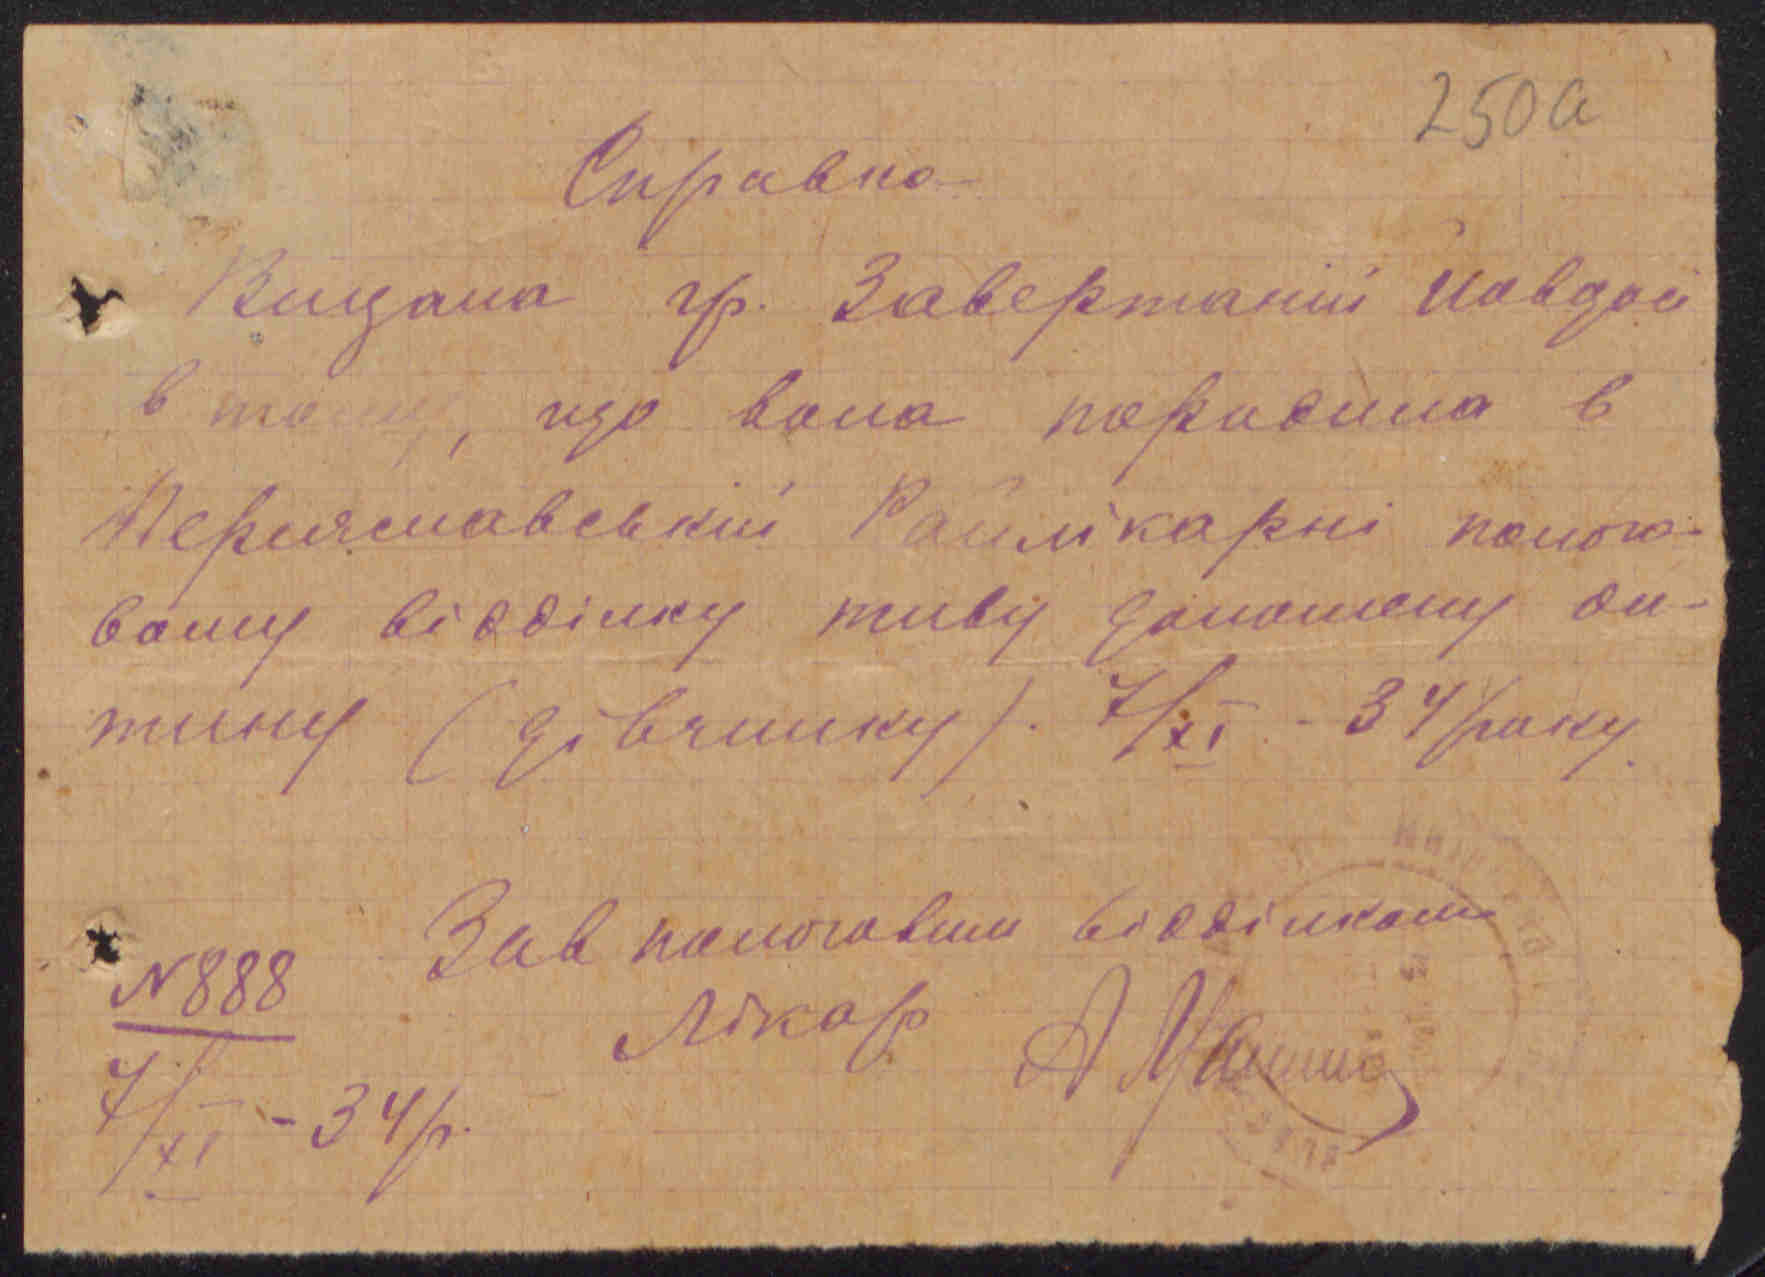 250а
Справка
Видана гр. Завертаній Йовдосі
в тому, що вона породила в
Переяславській Райлікарні полого-
вому відділку живу доношену ди-
тину (дівчинку). 7/XI - 34 року.
Зав пологовим відділком
Лікар
№888
7/XI - 34 р.